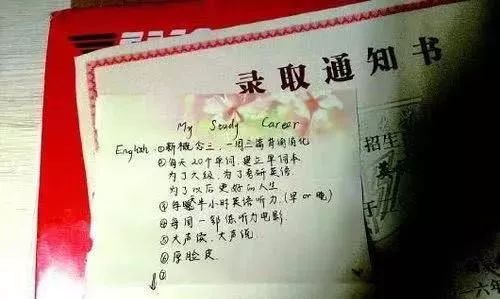 录取通知书
My Study Career
English ①新概念三,一周三篇背诵消化
②每天20个单词,建立单词本
为了六级,为了考研英语,
为了以后更好的人生
③每晚半小时英语听力.(早or晚)
④每周一部练听力电影
⑤大声读,大声说
⑥厚脸皮
⑦
招生